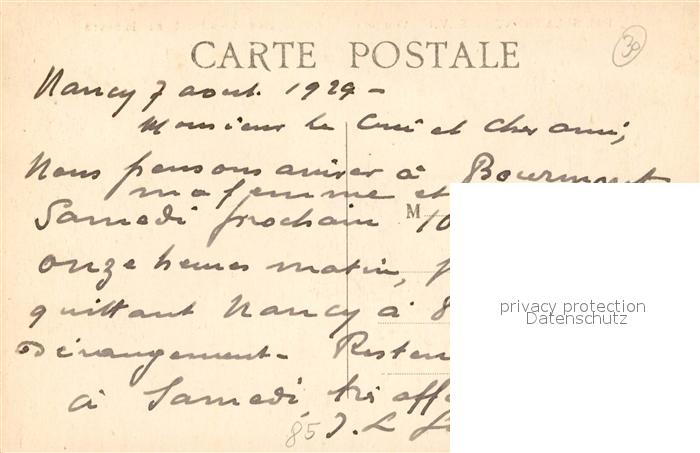 CARTE POSTALE
30
Nancy 7 aout. 1929 -
Monsieur le Curé et cher ami,
Nous pensons arriver à Bourmont
ma femme et
Samedi prochain 10
M
onze heures matin,
quittant Nancy à 8
Dérangement - Resten
à Samedi, très aff
85 J. L
privacy protection
Datenschutz